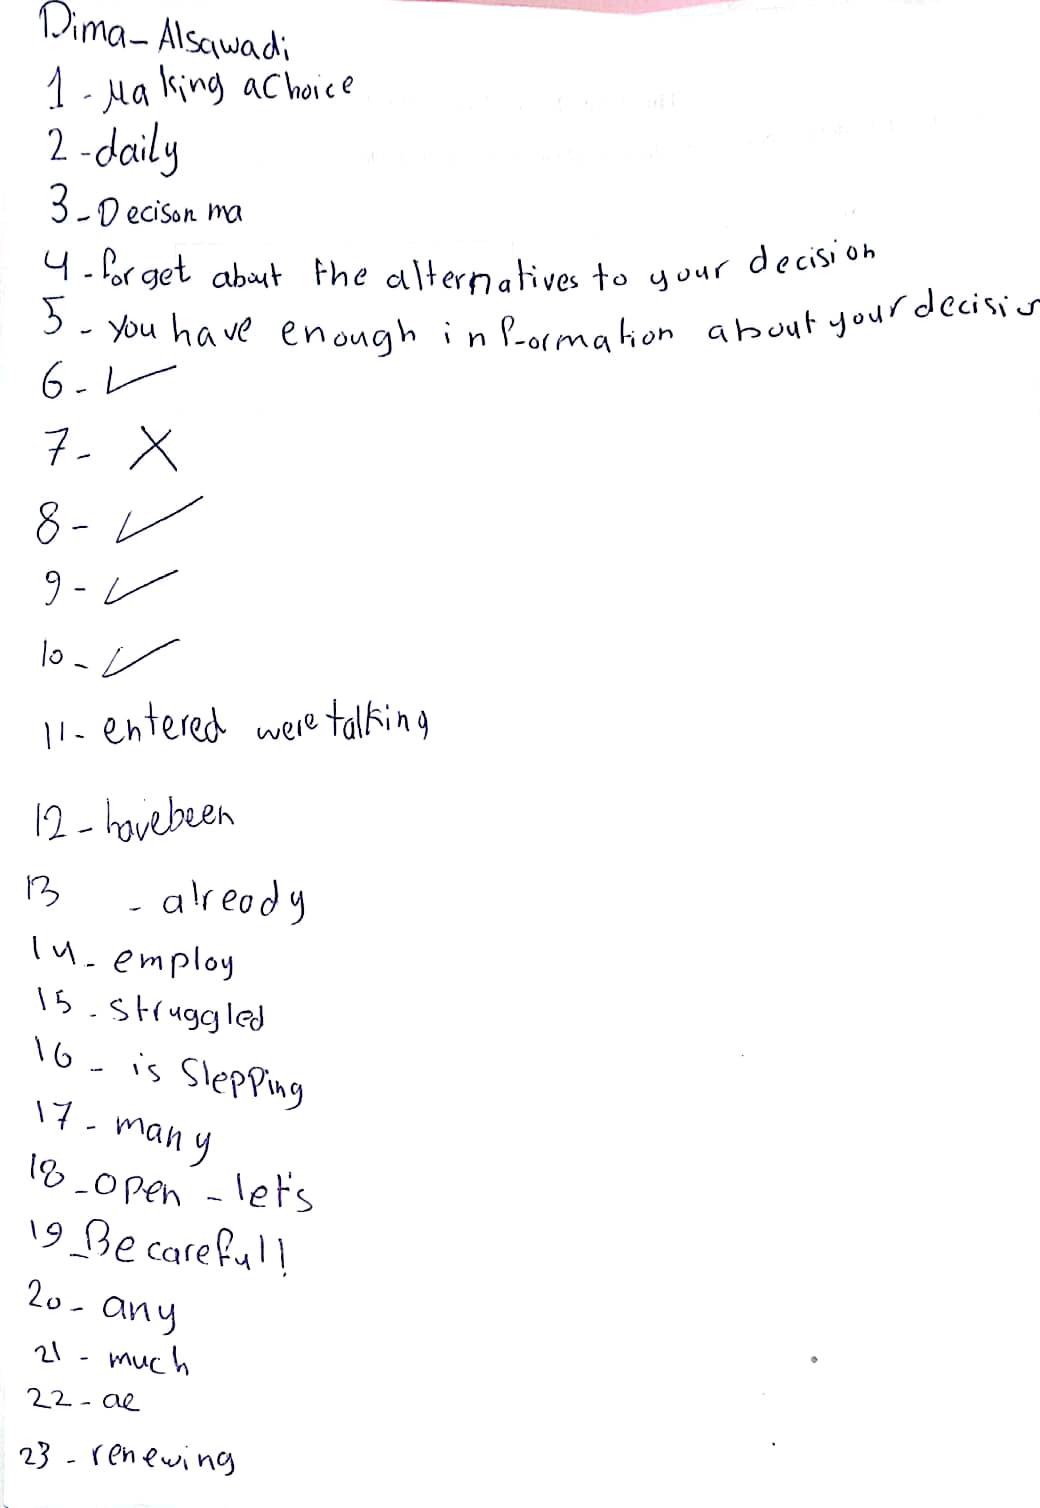 Dima - Alsawadi
1 - Making a Choice
2 - daily
3 - Decison ma
4 - forget about the alternatives to your decision
5 - you have enough information about your decision
6 - ✓
7 - X
8 - ✓
9 - ✓
10 - ✓
11 - entered were talking
12 - have been
13 - already
14 - employ
15 - struggled
16 - is Slepping
17 - many
18 - open - let's
19 - Be careful!
20 - any
21 - much
22 - ae
23 - renewing